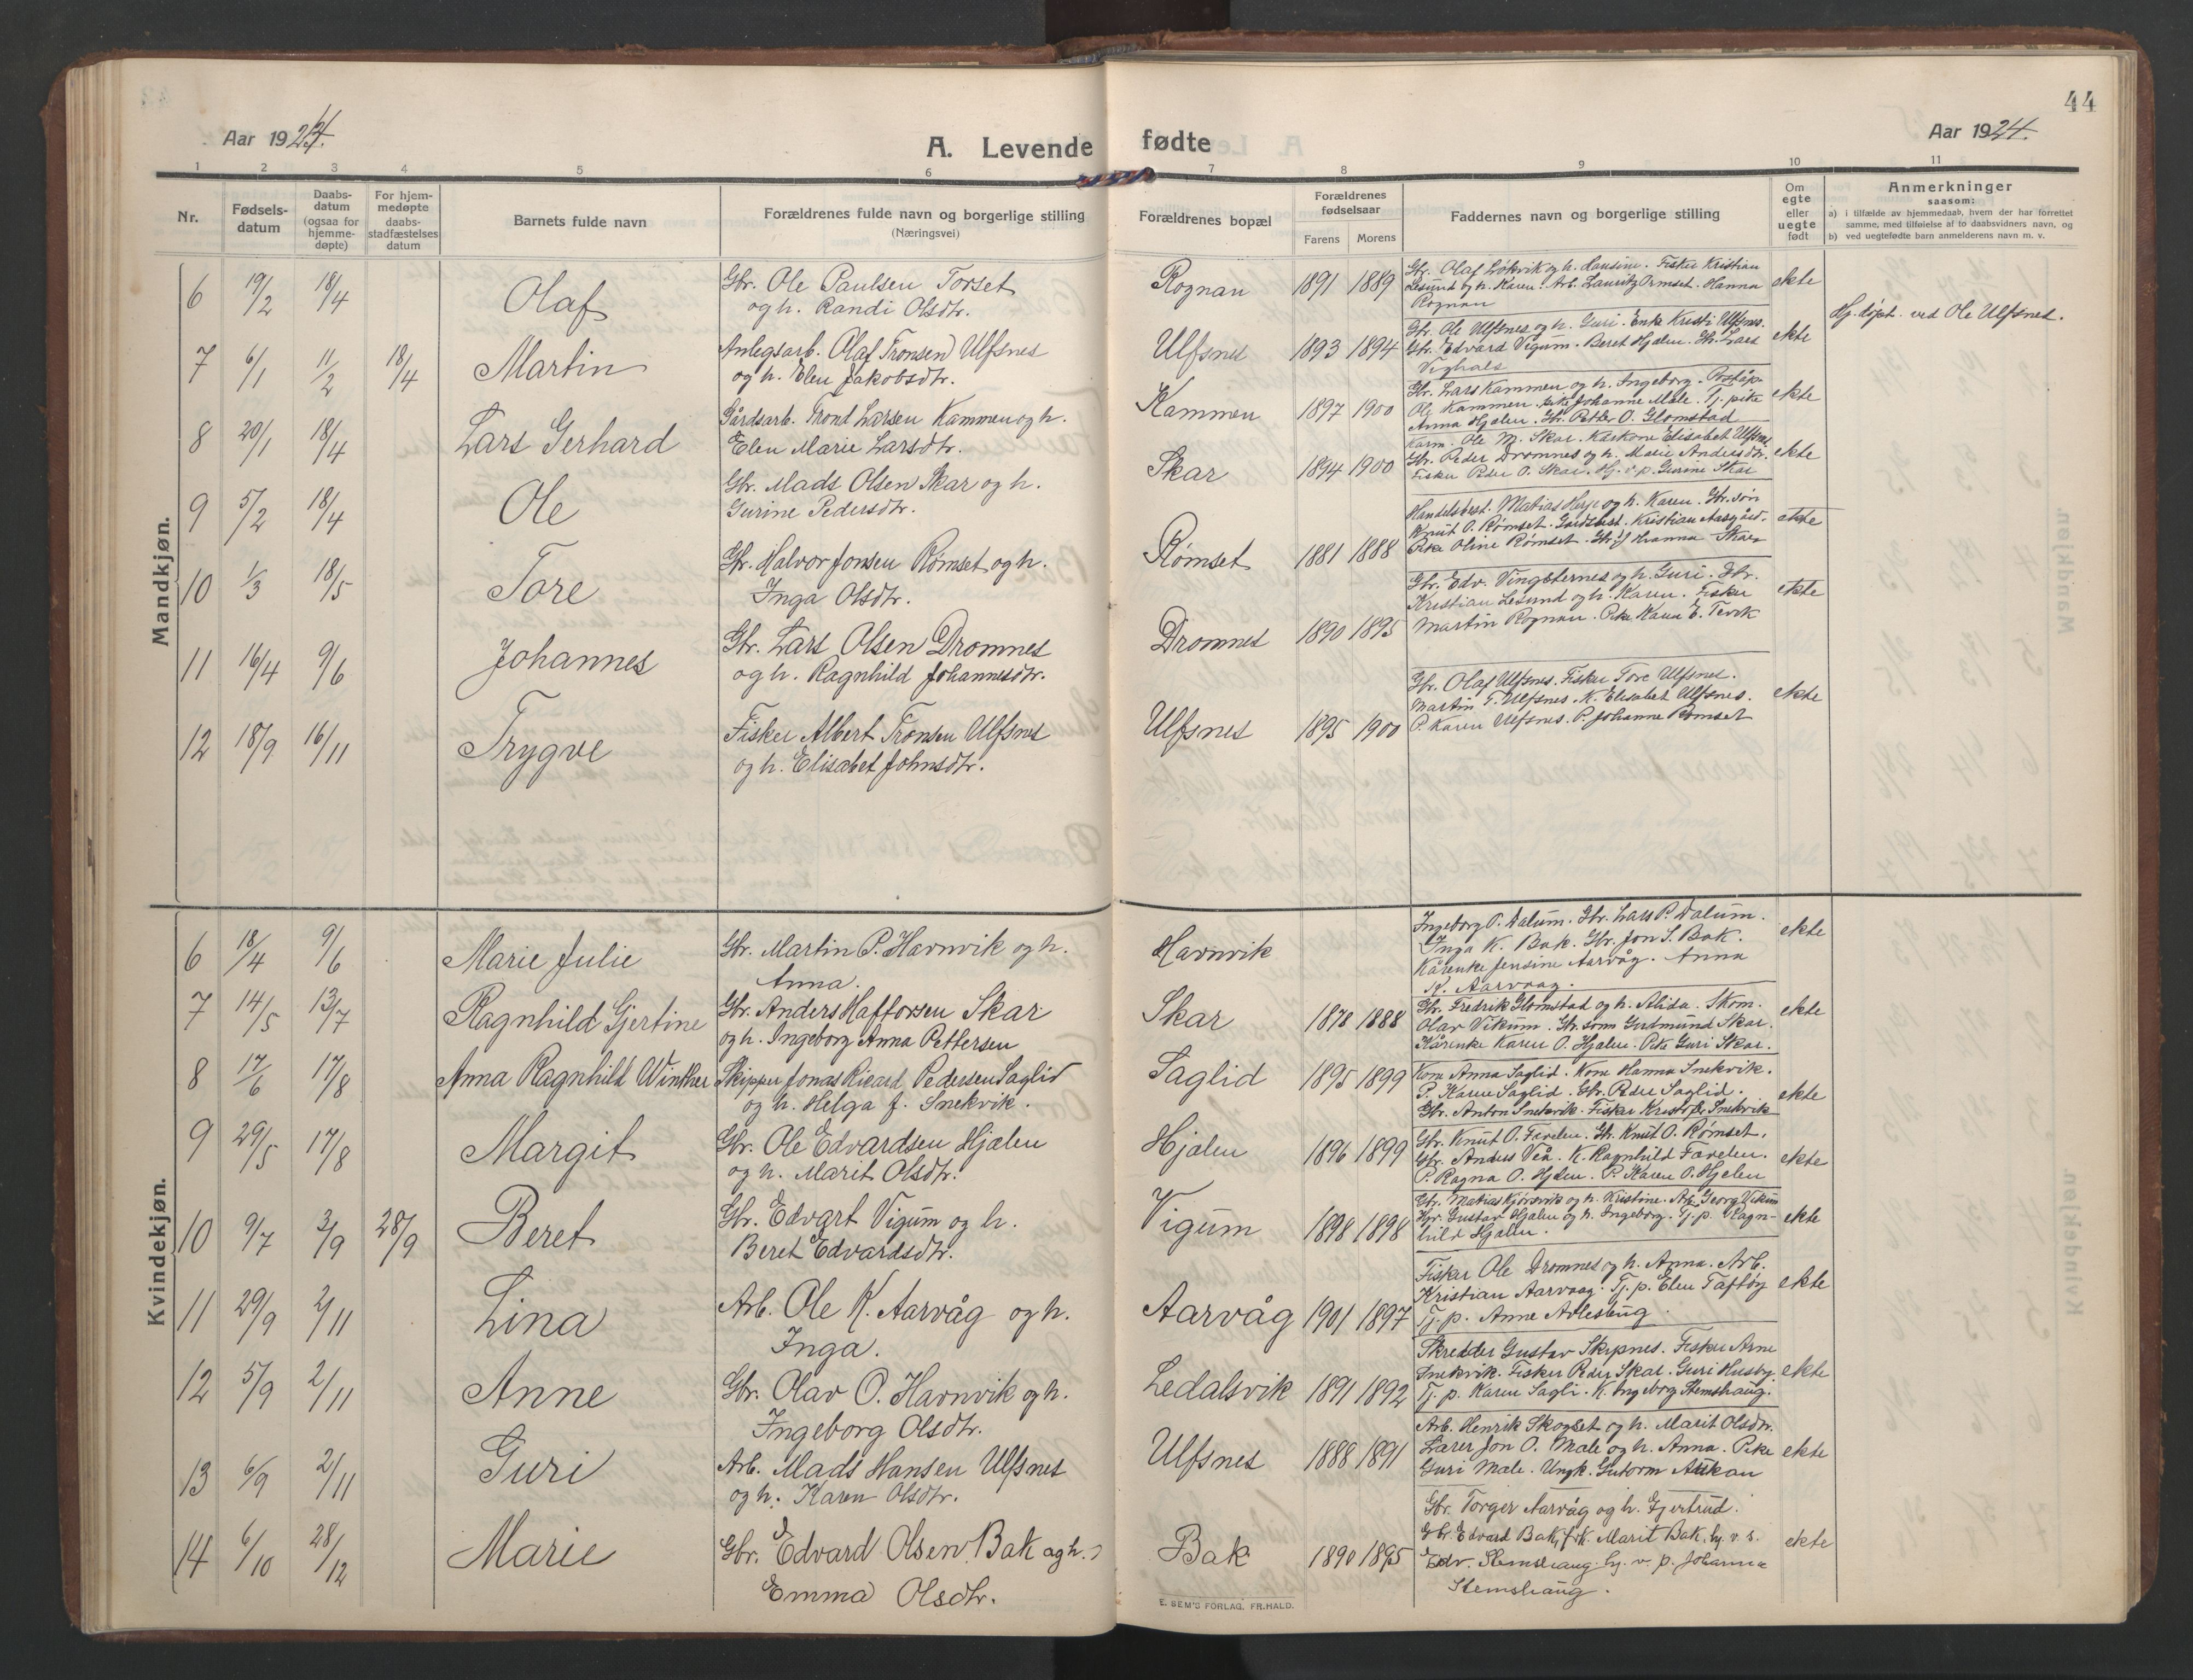 44
Aar 1924.
A. Levende
fødte
Aar 1924.
1 2 3 4 5 6 7 8 9 10 11
Nr.
Fødsels-
datum
Daabs-
datum
(ogsaa for
hjemme-
døpte)
For hjem-
medøpte
daabs-
stadfæstelses
datum
Barnets fulde navn
Forældrenes fulde navn og borgerlige stilling
(Næringsvei)
Forældrenes bopæl
Forældrenes
fødselsaar
Farens Morens
Faddernes navn og borgerlige stilling
Om
egte
eller
uegte
født
Anmerkninger
saasom:
a) i tilfælde av hjemmedaab, hvem der har forrettet
samme, med tilføielse af to daabsvidners navn, og
b) ved uegtefødte barn anmelderens navn m. v.
Mandkjøn.
6 19/2 18/4 Olaf
Gbr. Ole Paulsen Torset
og h. Randi Olsdtr.
Rognan 1891 1889
Gbr. Olaf Løkvik og h. Hansine. Fisker Kristian
Lesund og h. Karen. Arb. Lauritz Ormset. Hanna
Rognan
ekte
7 6/1 11/2 18/4 Martin
Anlegsarb. Olaf Tronsen Ulfsnes
og h. Elen Jakobsdtr.
Ulfsnes 1893 1894
Gbr. Ole Ulfsnes og h. Guri. Enke Kristi Ulfsnes.
Gbr. Edvard Vigum. Beret Hjalen. Gbr. Lars
Vighals
ekte
Hj. døpt ved Ole Ulfsnes.
8 20/1 18/4 Lars Gerhard
Gårdsarb. Trond Larsen Kammen og h.
Elen Marie Larsdtr.
Kammen 1897 1900
Gbr. Lars Kammen og h. Ingeborg. Poståp.
Ole Kammen. Pike Johanne Male. Tj. pike
Anna Hjalen. Gbr. Petter O. Glomstad
ekte
9 5/2 18/4 Ole
Gbr. Mads Olsen Skar og h.
Gurine Pedersdtr.
Skar 1894 1900
Karm. Ole M. Skar. Kårkone Elisabet Ulfsnes
Gbr. Peder Dromnes og h. Marie Andersdtr.
Fisker Peder O. Skar. Hj. v. p. Gurine Skar
ekte
10 1/3 18/5 Tore
Gbr. Halvor Jonsen Rømset og h.
Inga Olsdtr.
Rømset 1881 1888
Handelsbest. Matias Harje og h. Karen. Gbr. søn
Knut O. Rømset. Gardbest. Kristian Aasgård.
Pike Oline Rømset. Hanna Skar
ekte
11 16/4 9/6 Johannes
Gbr. Lars Olsen Dromnes
og h. Ragnhild Johannesdtr.
Dromnes 1890 1895
Gbr. Edv. Vingsternes og h. Guri. Gbr.
Kristian Lesund og h. Karen. Fisker
Martin Rognan. Pike Karen E. Tevik
ekte
12 18/9 16/11 Trygve
Fisker Albert Tronsen Ulfsnes
og h. Elisabet Johnsdtr.
Ulfsnes 1895 1900
Gbr. Olaf Ulfsnes. Fisker Tore Ulfsnes.
Martin T. Ulfsnes. K. Elisabet Ulfsnes.
P. Karen Ulfsnes. P. Johanne Rømset
ekte
Kvindekjøn.
6 18/4 9/6 Marie Julie
Gbr. Martin P. Havnvik og h.
Anna.
Havnvik
Ingeborg P. Dalum. Gbr. Lars P. Dalum.
Inga K. Bak. Gbr. Jon S. Bak.
Kårenke Jensine Aarvåg. Anna
K. Aarvaag.
ekte
7 14/5 13/7 Ragnhild Gjertine
Gbr. Anders Hafforsen Skar
og h. Ingeborg Anna Pettersen
Skar 1878 1888
Gbr. Fredrik Glomstad og h. Alida. Skom.
Olav Vikum. Gbr. sønn Gudmund Skar.
Kårenke Karen O. Hjalen. Pike Guri Skar.
ekte
8 17/6 17/8 Anna Ragnhild Winther
Skipper Jonas Ricard Pedersen Saglid
og h. Helga J. Snekvik.
Saglid 1895 1899
Kone Anna Saglid. Kone Hanna Snekvik.
P. Karen Saglid. Gbr. Peder Saglid.
Gbr. Anton Snekvik. Fisker Kristofer Snekvik
ekte
9 29/5 17/8 Margit
Gbr. Ole Edvardsen Hjalen
og h. Marit Olsdtr.
Hjalen 1896 1899
Gbr. Knut O. Færelen. Gbr. Knut O. Rømset.
Gbr. Anders Veå. K. Ragnhild Færelen.
P. Ragna O. Hjalen. P. Karen O. Hjalen
ekte
10 9/7 3/9 28/9 Beret
Gbr. Edvart Vigum og h.
Beret Edvardsdtr.
Vigum 1898 1898
Gbr. Matias Kjørsvik og h. Kristine. Arb. Georg Vikum
Gbr. Gustav Hjalen og h. Ingeborg. Tj. p. Ragn-
hild Hjalen.
ekte
11 29/9 2/11 Lina
Arb. Ole K. Aarvåg og h.
Inga.
Aarvåg 1901 1897
Fisker Ole Dromnes og h. Anna. Arb.
Kristian Aarvaag. Tj. p. Elen Taftøy
Tj. p. Anne
ekte
12 5/9 2/11 Anne
Gbr. Olav O. Havnvik og h.
Ingeborg Olsdtr.
Ledalsvik 1891 1892
Skredder Gustav Skipnes. Fisker Arne
Snekvik. Fisker Peder Skar. Guri Husby.
Tj. p. Karen Sagli. K. Ingeborg Stemshaug.
ekte
13 6/9 2/11 Guri
Arb. Mads Hansen Ulfsnes
og h. Karen Olsdtr.
Ulfsnes 1888 1891
Arb. Henrik Skogset og h. Marit Olsdtr.
Lærer Jon O. Male og h. Anna. Pike
Guri Male. Ungk. Gutorm Aukan
ekte
14 6/10 28/12 Marie
Gbr. Edvard Olsen Bak og h.
Emma Olsdtr.
Bak 1890 1895
Gbr. Torger Aarvåg og h. Gjertrud.
Gbr. Edvard Bak, frk. Marit Bak, hj. v. s.
Edv. Stemshaug. hj. v. p. Johanna
Stemshaug.
ekte
E. SEM'S FORLAG, FR.HALD.